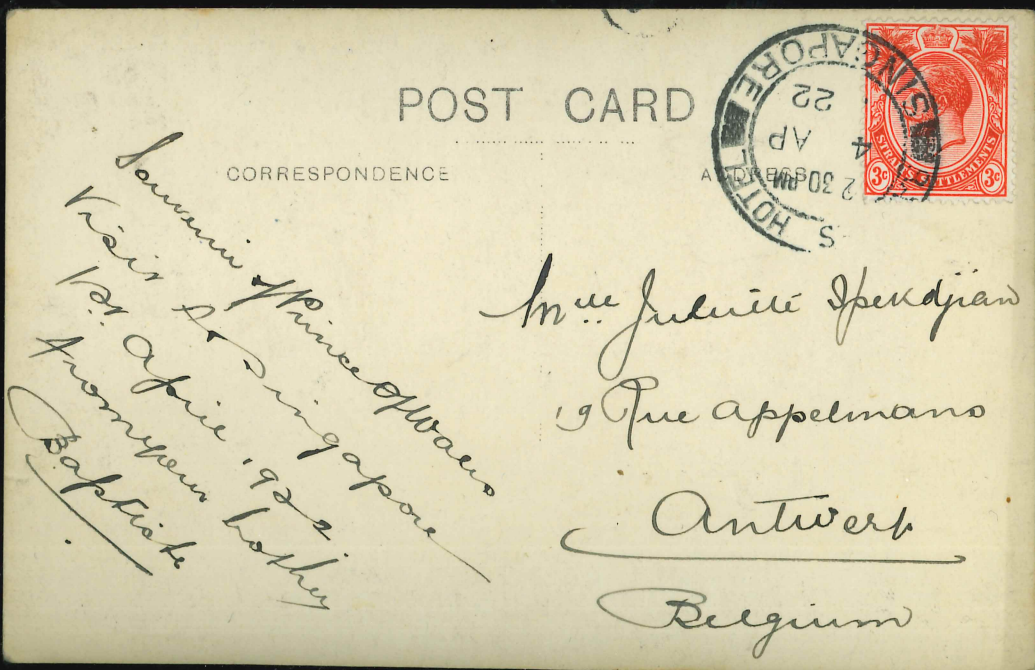 POST CARD
CORRESPONDENCE
ADDRESS
SINGAPORE
S HOTEL
2 30 PM
4
AP
22
STRAITS SETTLEMENTS
3c 3c
Souvenir of Prince of Wales
Visit to Singapore
1st April 1922
from your brother
Baptiste
Mlle Juliette Ipekdjian
19 Rue Appelmans
Antwerp
Belgium